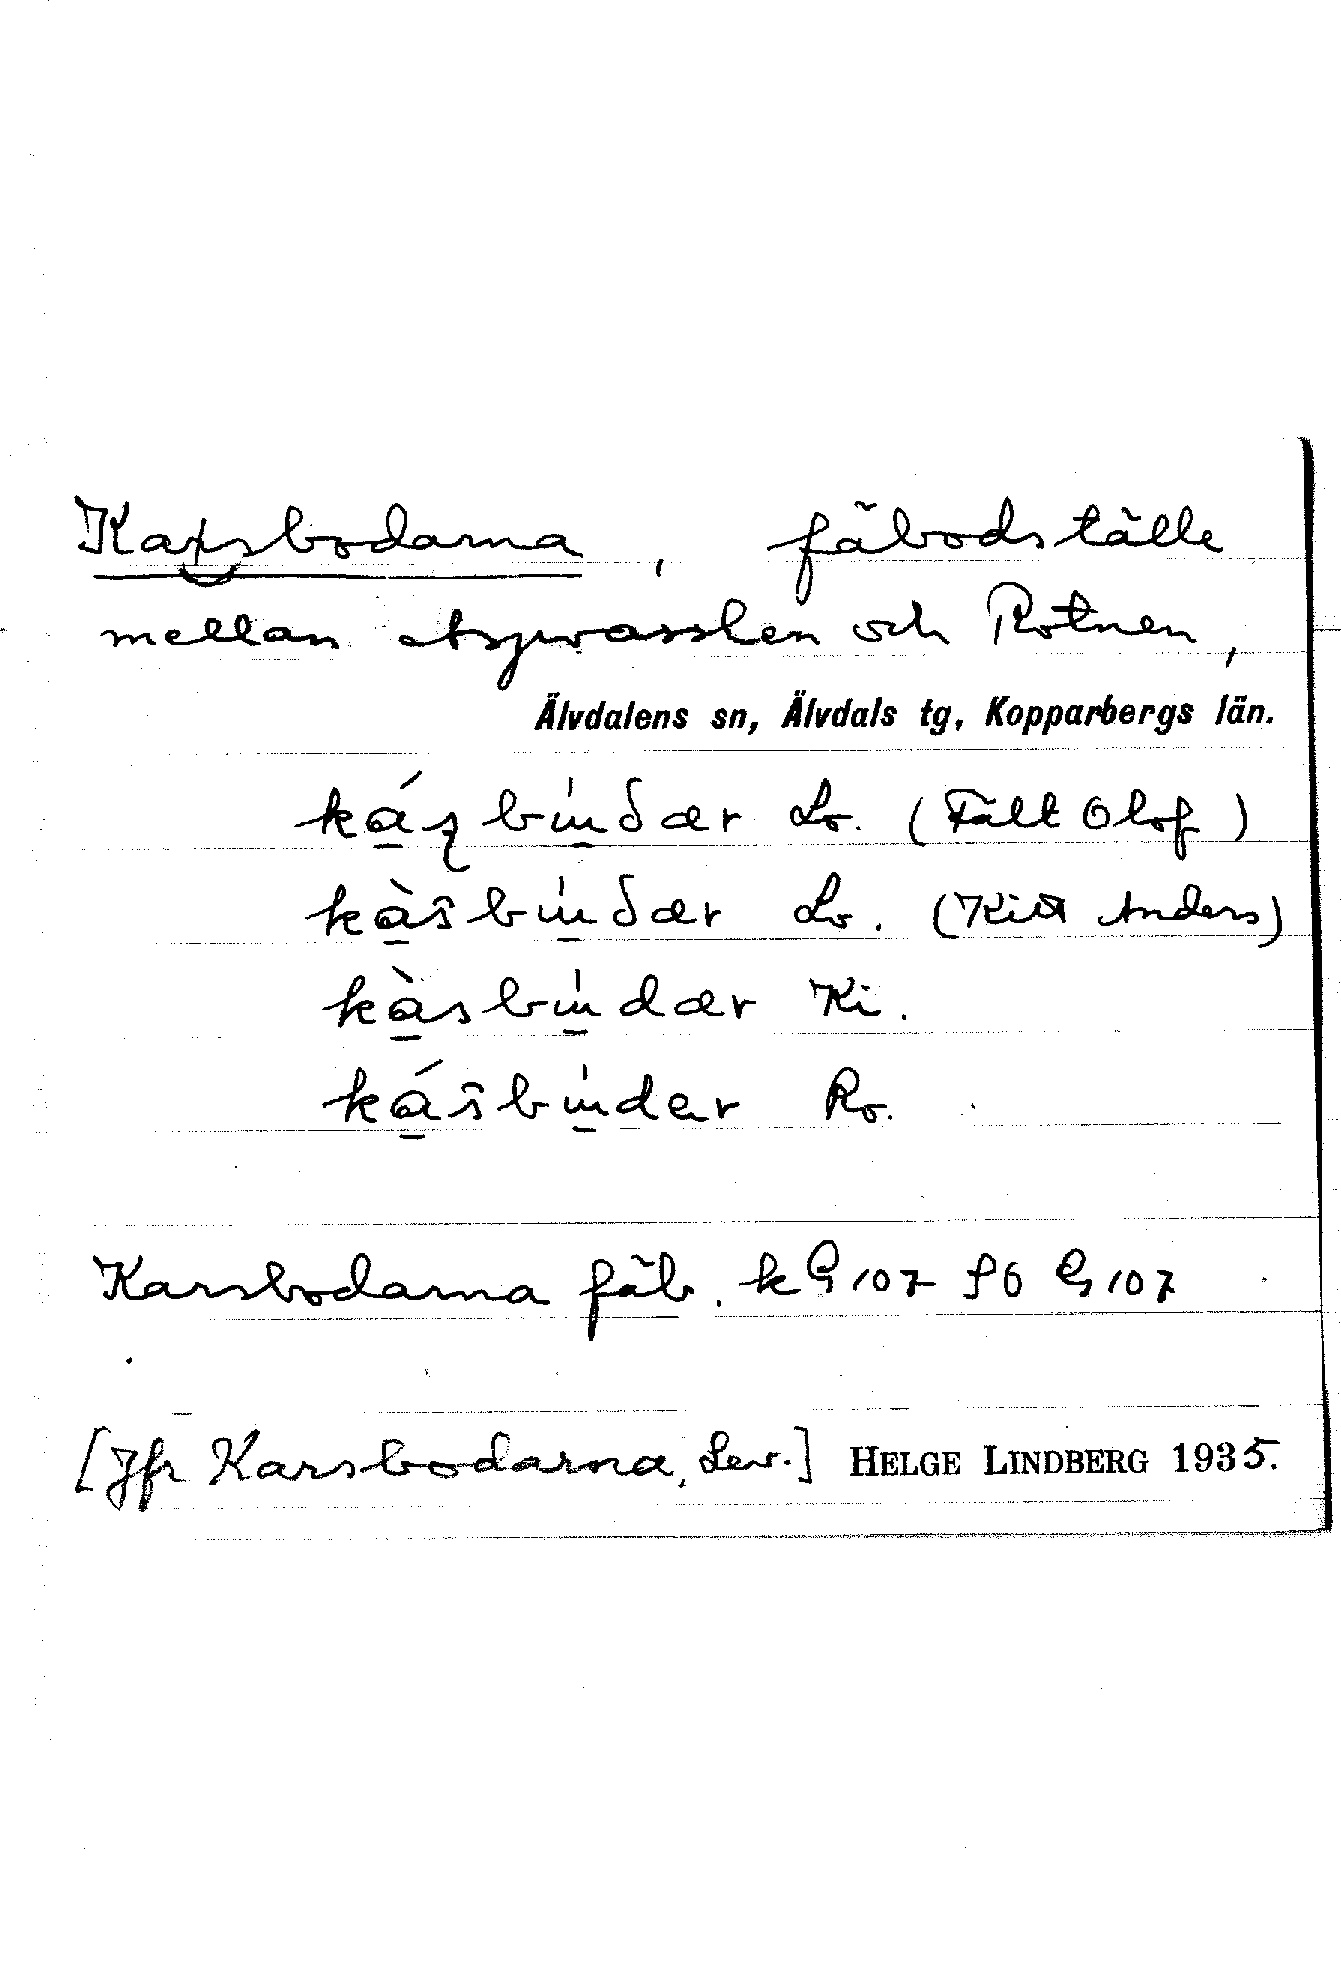 Karsbodarna, fäbodställe
mellan och Rotnen,
Älvdalens sn, Älvdals tg, Kopparbergs län.
Lo. (Fält Olof)
kàs̑bu̇̀dær Lo. (Kitt Anders)
kàsbu̇̀dær Ki.
kás̑bu̇̀der Ro.
Karsbodarna fäb. k G 107 G 107
[Jfr Karsbodarna, Lev.] HELGE LINDBERG 1935.